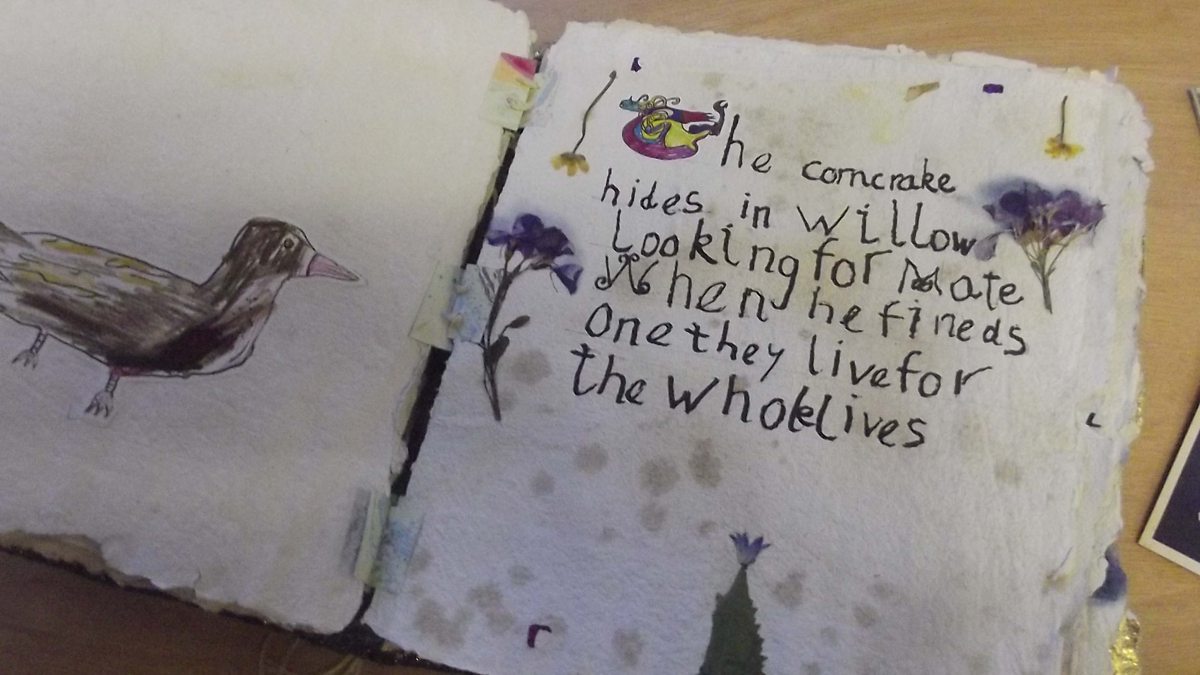 The corncrake
hides in Willow
Looking for Mate
When he fineds
One they live for
the whole lives